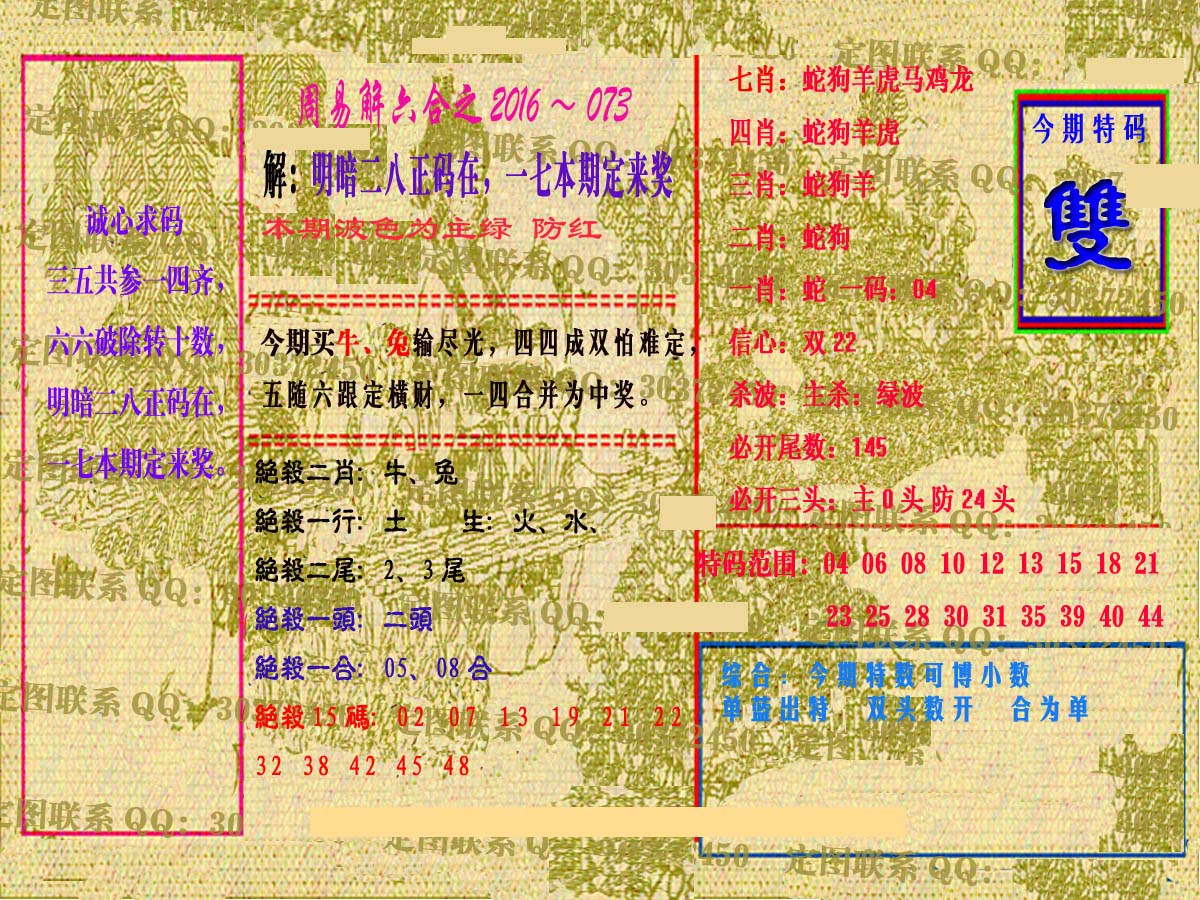 诚心求码
三五共参一四齐，
六六破除转十数，
明暗二八正码在，
一七本期定来奖。
周易解六合之 2016～073
解：明暗二八正码在，一七本期定来奖
本期波色为主绿 防红
今期买牛、兔输尽光，四四成双怕难定，
五随六跟定横财，一四合并为中奖。
絕殺二肖: 牛、兔
絕殺一行: 土 生: 火、水、
絕殺二尾: 2、3尾
絕殺一頭: 二頭
絕殺一合: 05、08合
絕殺15碼: 02 07 13 19 21 22
32 38 42 45 48
七肖：蛇狗羊虎马鸡龙
四肖：蛇狗羊虎
三肖：蛇狗羊
二肖：蛇狗
一肖：蛇 一码：04
信心：双22
杀波：主杀：绿波
必开尾数：145
必开三头：主0头防24头
今期特码
雙
特码范围：04 06 08 10 12 13 15 18 21
23 25 28 30 31 35 39 40 44
综合：今期特数可博小数
单蓝出特 双头数开 合为单
定图联系QQ：